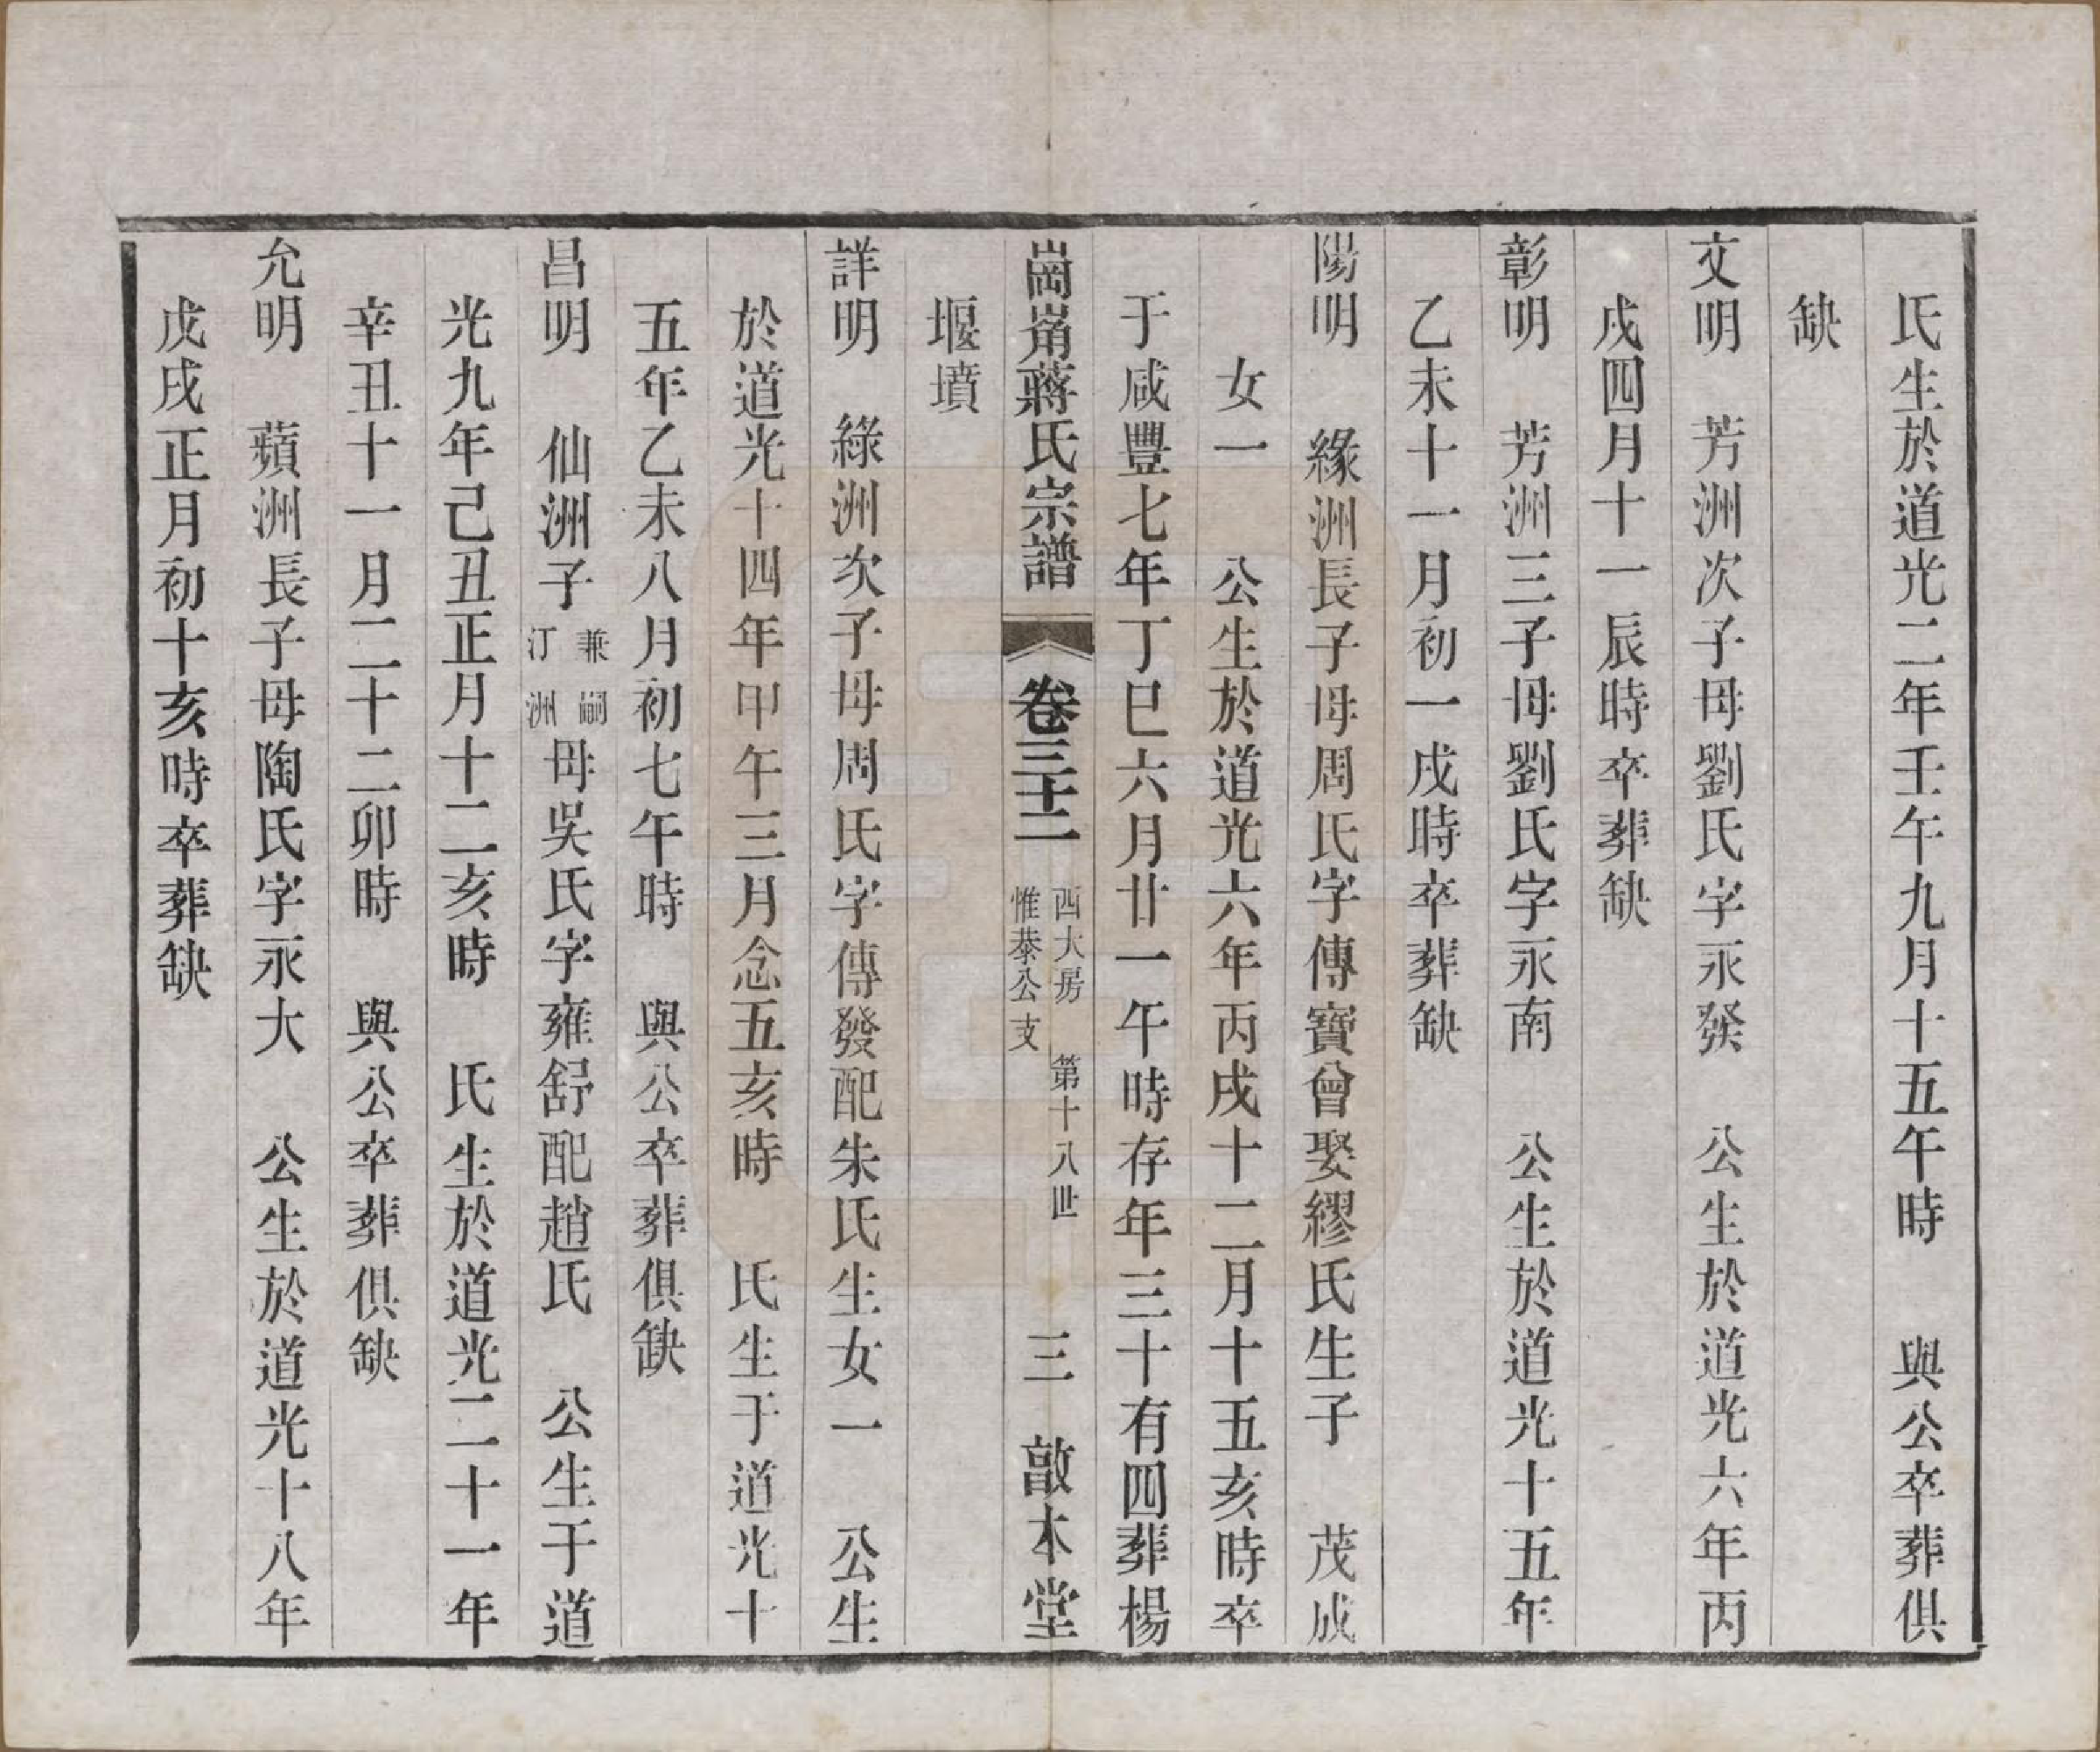 氏生於道光二年壬午九月十五午時　與公卒葬俱
缺
文明　芳洲次子母劉氏字永發　公生於道光六年丙
戌四月十一辰時卒葬缺
彰明　芳洲三子母劉氏字永南　公生於道光十五年
乙未十一月初一戌時卒葬缺
陽明　緣洲長子母周氏字傳寶曾娶繆氏生子　茂成
女一　公生於道光六年丙戌十二月十五亥時卒
于咸豐七年丁巳六月廿一午時存年三十有四葬楊
崗嵛蔣氏宗譜　卷三十二　西大房　第十八世　惟恭公支　三　敬本堂
堰墳
詳明　綠洲次子母周氏字傳發配朱氏生女一　公生
於道光十四年甲午三月念五亥時　氏生于道光十
五年乙未八月初七午時　與公卒葬俱缺
昌明　仙洲子兼嗣汀洲母吳氏字雍舒配趙氏　公生于道
光九年己丑正月十二亥時　氏生於道光二十一年
辛丑十一月二十二卯時　與公卒葬俱缺
允明　蘋洲長子母陶氏字永大　公生於道光十八年
戊戌正月初十亥時卒葬缺